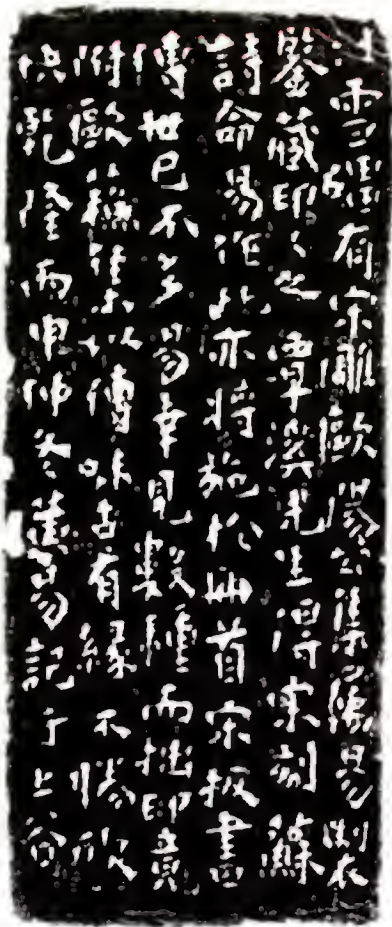 雪礓有宋雕歐陽公集屬易製
鑒藏印久之覃溪先生得宋刻蘇
詩命易作此亦將施於冊首宋板書
傳世已不多易幸見數種而拙印竟
附歐蘇集以傳味古有緣不勝欣
快乾隆丙申仲冬董易記于上谷